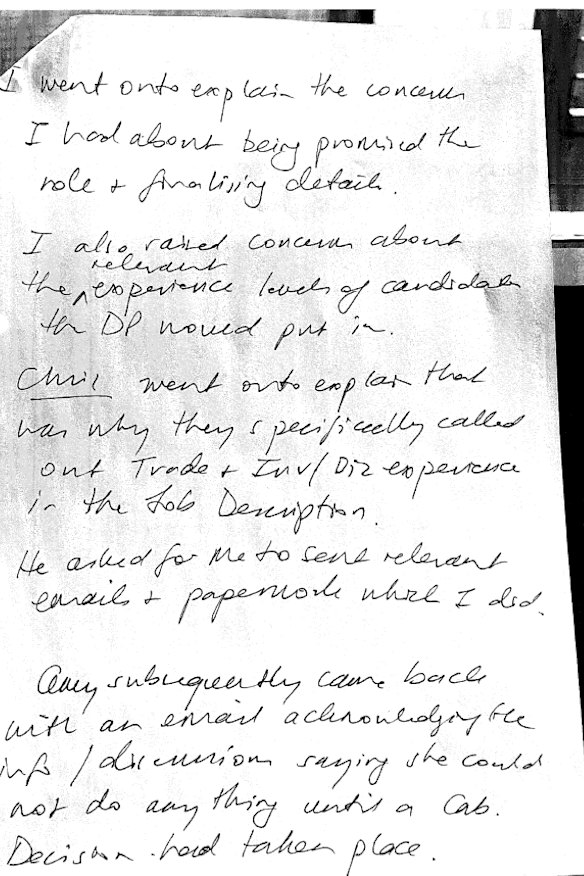 I went onto explain the concerns
I had about being promised the
role + finalising details.
I also raised concerns about
relevant
the ^ experience levels of candidates
the DP would put in.
Chris went onto explain that
was why they specifically called
out Trade + Inv/Biz experience
in the Job Description.
He asked for me to send relevant
emails + paperwork which I did.
Amy subsequently came back
with an email acknowledging the
info / discussions saying she could
not do anything until a Cab.
Decision had taken place.